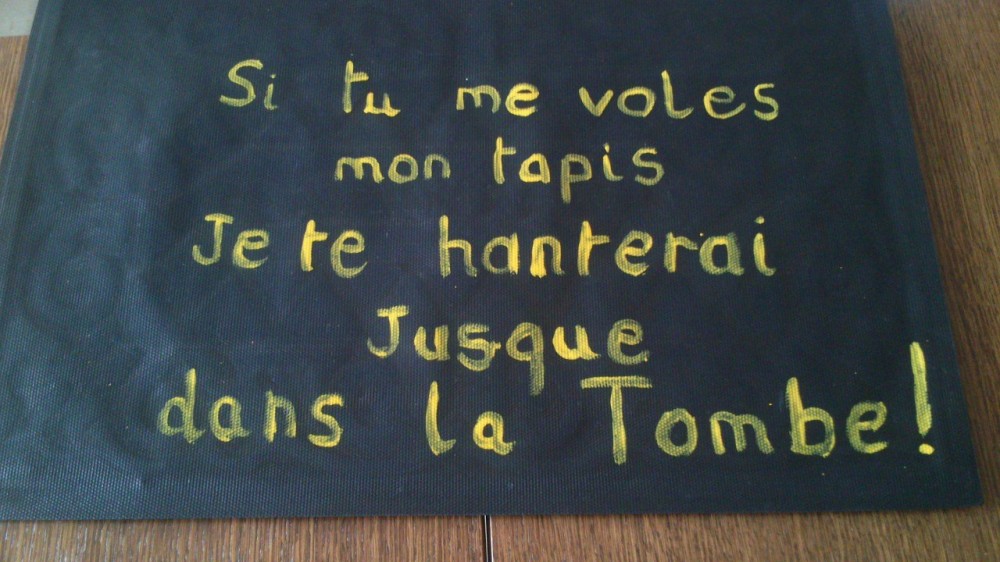 Si tu me voles
mon tapis
Je te hanterai
Jusque
dans la Tombe!